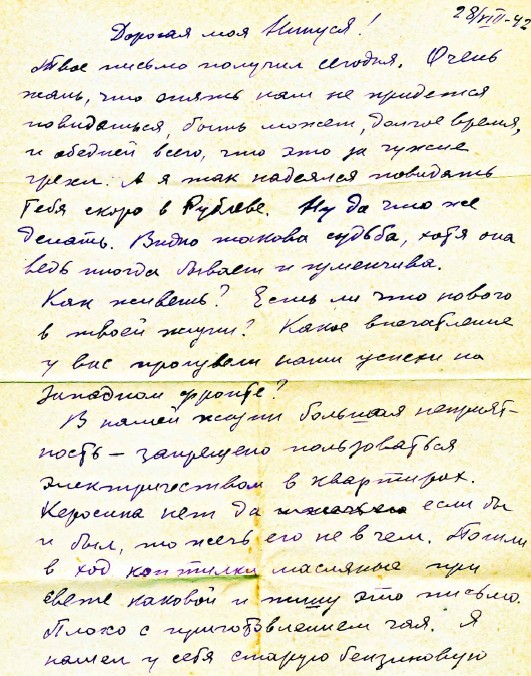 28/VIII-42
Дорогая моя Нинуся!
Твое письмо получил сегодня. Очень
жаль, что опять нам не придется
повидаться, быть может, долгое время,
и обедней всего, что это за чужие
грехи. А я так надеялся повидать
Тебя скоро в Рублеве. Ну да что же
делать. Видно такова судьба, хотя она
ведь иногда бывает и изменчива.
Как живешь? Есть ли что нового
в твоей жизни? Какое впечатление
у вас произвели наши успехи на
западном фронте?
В нашей жизни большая неприят-
ность – запрещено пользоваться
электричеством в квартирах.
Керосина нет да если бы
и был, то жечь его не в чем. Пошли
в ход коптилки масляные при
свете каковой и пишу это письмо.
Плохо с приготовлением чая. Я
нашел у себя старую бензиновую